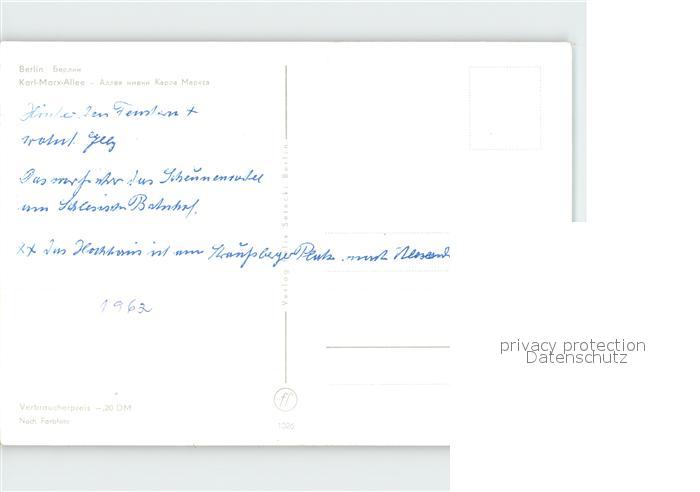 Berlin Берлин
Karl-Marx-Allee – Аллея имени Карла Маркса
Hinter den Fenstern +
wohnt
Das war früher das Scheunenviertel
am Schlesischen Bahnhof.
++ das Hochhaus ist am Straußberger Platz. nach
1962
Verlag Felix Setecki Berlin
privacy protection
Datenschutz
Verbraucherpreis –,20 DM
Nach Farbfoto
1026